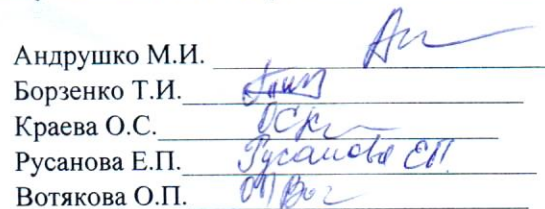 Андрушко М.И.
Борзенко Т.И.
Краева О.С.
Русанова Е.П. Русанова ЕП
Вотякова О.П.